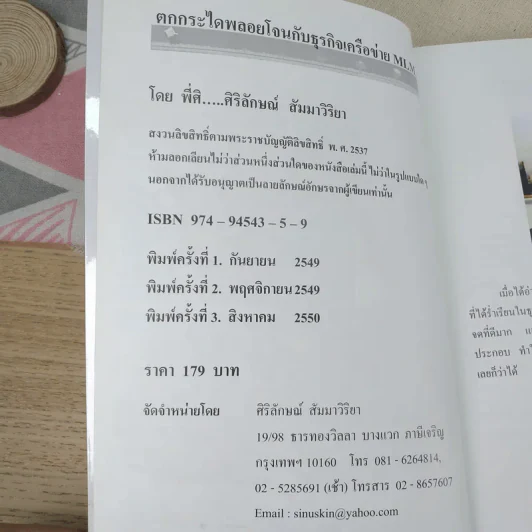 ตกกระไดพลอยโจนกับธุรกิจเครือข่าย MLM
โดย พี่ศิ.....ศิริลักษณ์ สัมมาวิริยา
สงวนลิขสิทธิ์ตามพระราชบัญญัติลิขสิทธิ์ พ.ศ. 2537
ห้ามลอกเลียนไม่ว่าส่วนหนึ่งส่วนใดของหนังสือเล่มนี้ ไม่ว่าในรูปแบบใด ๆ
นอกจากได้รับอนุญาตเป็นลายลักษณ์อักษรจากผู้เขียนเท่านั้น
ISBN 974 – 94543 – 5 – 9
พิมพ์ครั้งที่ 1. กันยายน 2549
พิมพ์ครั้งที่ 2. พฤศจิกายน 2549
พิมพ์ครั้งที่ 3. สิงหาคม 2550
ราคา 179 บาท
จัดจำหน่ายโดย ศิริลักษณ์ สัมมาวิริยา
19/98 ธารทองวิลลา บางแวก ภาษีเจริญ
กรุงเทพฯ 10160 โทร 081 - 6264814,
02 - 5285691 (เช้า) โทรสาร 02 - 8657607
Email : sinuskin@yahoo.com
เมื่อได้อ่
ที่ได้ร่ำเรียนในชุ
จดที่ดีมาก แ
ประกอบ ทำใ
เลยก็ว่าได้